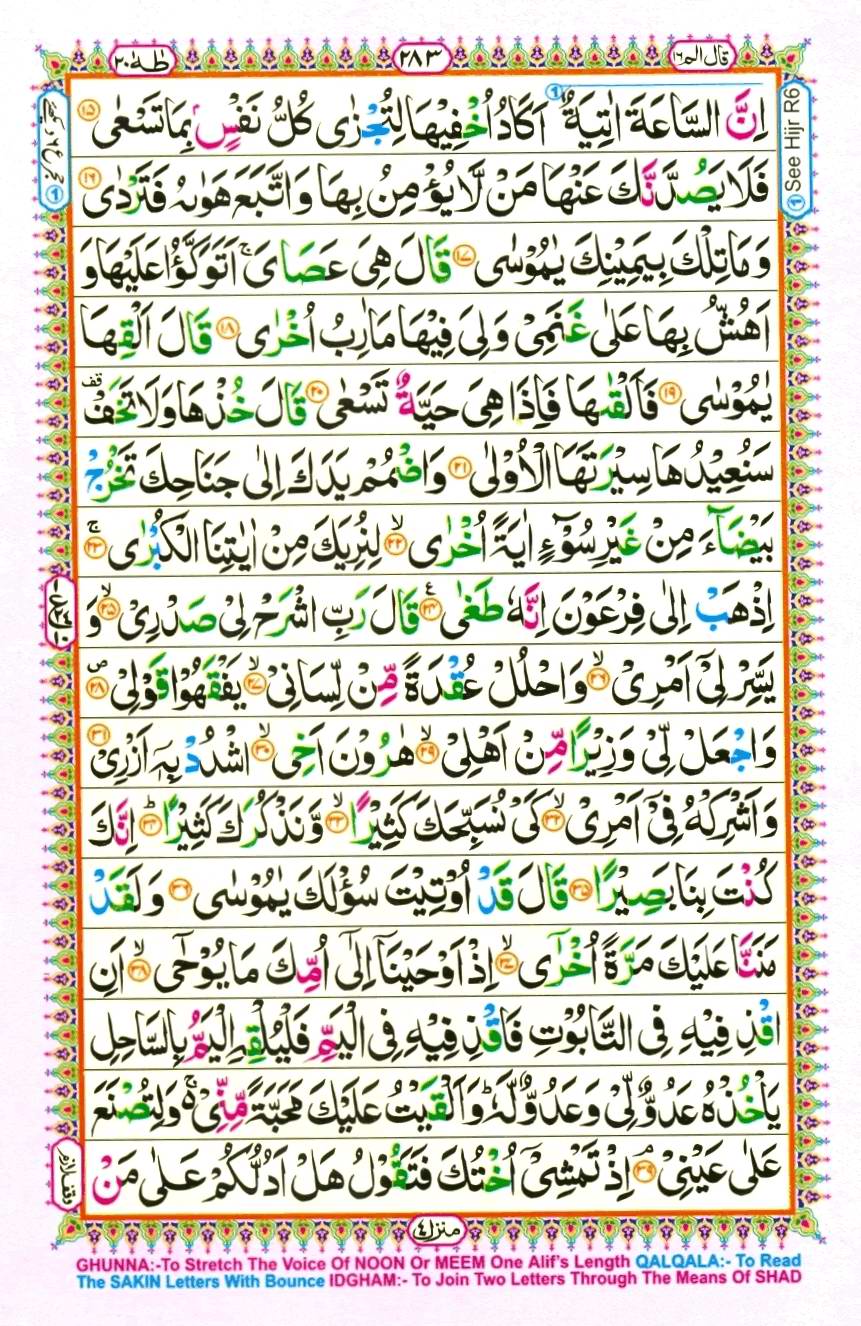 قال الم ١٦
٢٨٣
طٰهٰ ٢٠
See Hijr R6
اِنَّ السَّاعَةَ اٰتِيَةٌ اَكَادُ اُخْفِيْهَا لِتُجْزٰى كُلُّ نَفْسٍۭ بِمَا تَسْعٰى ١٥
فَلَا يَصُدَّنَّكَ عَنْهَا مَنْ لَّا يُؤْمِنُ بِهَا وَاتَّبَعَ هَوٰىهُ فَتَرْدٰى ١٦
وَمَا تِلْكَ بِيَمِيْنِكَ يٰمُوْسٰى ١٧ قَالَ هِىَ عَصَاىَۚ اَتَوَكَّؤُا عَلَيْهَا وَ
اَهُشُّ بِهَا عَلٰى غَنَمِىْ وَلِىَ فِيْهَا مَاٰرِبُ اُخْرٰى ١٨ قَالَ اَلْقِهَا
يٰمُوْسٰى ١٩ فَاَلْقٰىهَا فَاِذَا هِىَ حَيَّةٌ تَسْعٰى ٢٠ قَالَ خُذْهَا وَلَا تَخَفْ قف
سَنُعِيْدُهَا سِيْرَتَهَا الْاُوْلٰى ٢١ وَاضْمُمْ يَدَكَ اِلٰى جَنَاحِكَ تَخْرُجْ
بَيْضَآءَ مِنْ غَيْرِ سُوْٓءٍ اٰيَةً اُخْرٰى ۙ٢٢ لِنُرِيَكَ مِنْ اٰيٰتِنَا الْكُبْرٰى ۚ٢٣
اِذْهَبْ اِلٰى فِرْعَوْنَ اِنَّهٗ طَغٰى ٢٤ ع قَالَ رَبِّ اشْرَحْ لِىْ صَدْرِىْ ۙ٢٥ وَ
يَسِّرْ لِىْٓ اَمْرِىْ ۙ٢٦ وَاحْلُلْ عُقْدَةً مِّنْ لِّسَانِىْ ۙ٢٧ يَفْقَهُوْا قَوْلِىْ ٢٨ ص
وَاجْعَلْ لِّىْ وَزِيْرًا مِّنْ اَهْلِىْ ۙ٢٩ هٰرُوْنَ اَخِى ۙ٣٠ اشْدُدْ بِهٖٓ اَزْرِىْ ۙ٣١
وَاَشْرِكْهُ فِىْٓ اَمْرِىْ ۙ٣٢ كَىْ نُسَبِّحَكَ كَثِيْرًا ۙ٣٣ وَّنَذْكُرَكَ كَثِيْرًا ؕ٣٤ اِنَّكَ
كُنْتَ بِنَا بَصِيْرًا ٣٥ قَالَ قَدْ اُوْتِيْتَ سُؤْلَكَ يٰمُوْسٰى ٣٦ وَلَقَدْ
مَنَنَّا عَلَيْكَ مَرَّةً اُخْرٰٓى ۙ٣٧ اِذْ اَوْحَيْنَآ اِلٰٓى اُمِّكَ مَا يُوْحٰٓى ۙ٣٨ اَنِ
اقْذِفِيْهِ فِى التَّابُوْتِ فَاقْذِفِيْهِ فِى الْيَمِّ فَلْيُلْقِهِ الْيَمُّ بِالسَّاحِلِ
يَاْخُذْهُ عَدُوٌّ لِّىْ وَعَدُوٌّ لَّهٗؕ وَاَلْقَيْتُ عَلَيْكَ مَحَبَّةً مِّنِّىْ ۚ وَلِتُصْنَعَ
عَلٰى عَيْنِىْ ۘ٣٩ اِذْ تَمْشِىْٓ اُخْتُكَ فَتَقُوْلُ هَلْ اَدُلُّكُمْ عَلٰى مَنْ
وقف لازم
منزل ٤
GHUNNA:-To Stretch The Voice Of NOON Or MEEM One Alif's Length QALQALA:- To Read
The SAKIN Letters With Bounce IDGHAM:- To Join Two Letters Through The Means Of SHAD